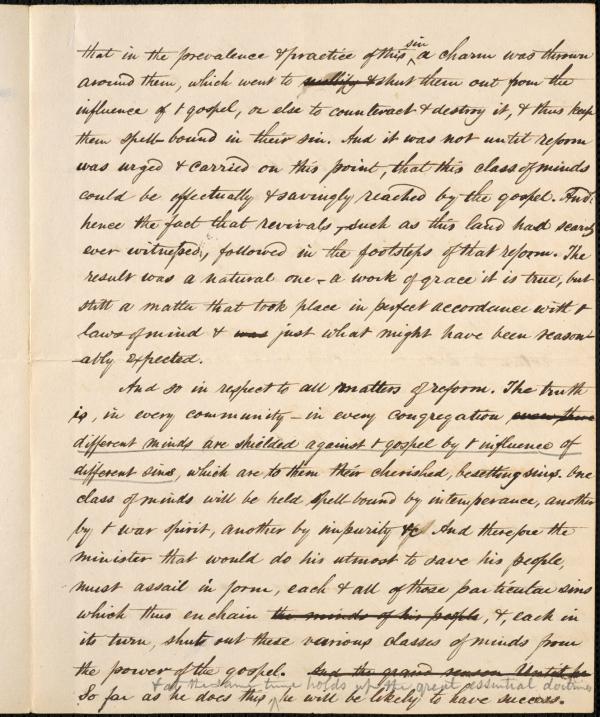 that in the prevalence & practice of this sin a charm was thrown
around them, which went to nullify & shut them out from the
influence of t gospel, or else to counteract & destroy it, & thus keep
them spell-bound in their sin. And it was not until reform
was urged & carried on this point, that this class of minds
could be effectually & savingly reached by the gospel. And
hence the fact that revivals, such as this land had scarcely
ever witnessed, followed in the footsteps of that reform. The
result was a natural one - a work of grace it is true, but
still a matter that took place in perfect accordance with t
laws of mind & was just what might have been reason-
-ably expected.
And so in respect to all matters of reform. The truth
is, in every community - in every congregation
different minds are shielded against t gospel by t influence of
different sins, which are to them their cherished, besetting sins. One
class of minds will be held spell bound by intemperance, another
by t war spirit, another by impurity &c And therefore the
minister that would do his utmost to save his people,
must assail in form, each & all of those particular sins
which thus enchain the minds of his people, &, each in
its turn, shuts out these various classes of minds from
the power of the gospel. And the grand reason Until he
& at the same time holds up the great essential doctrines
So far as he does this he will be likely to have success.